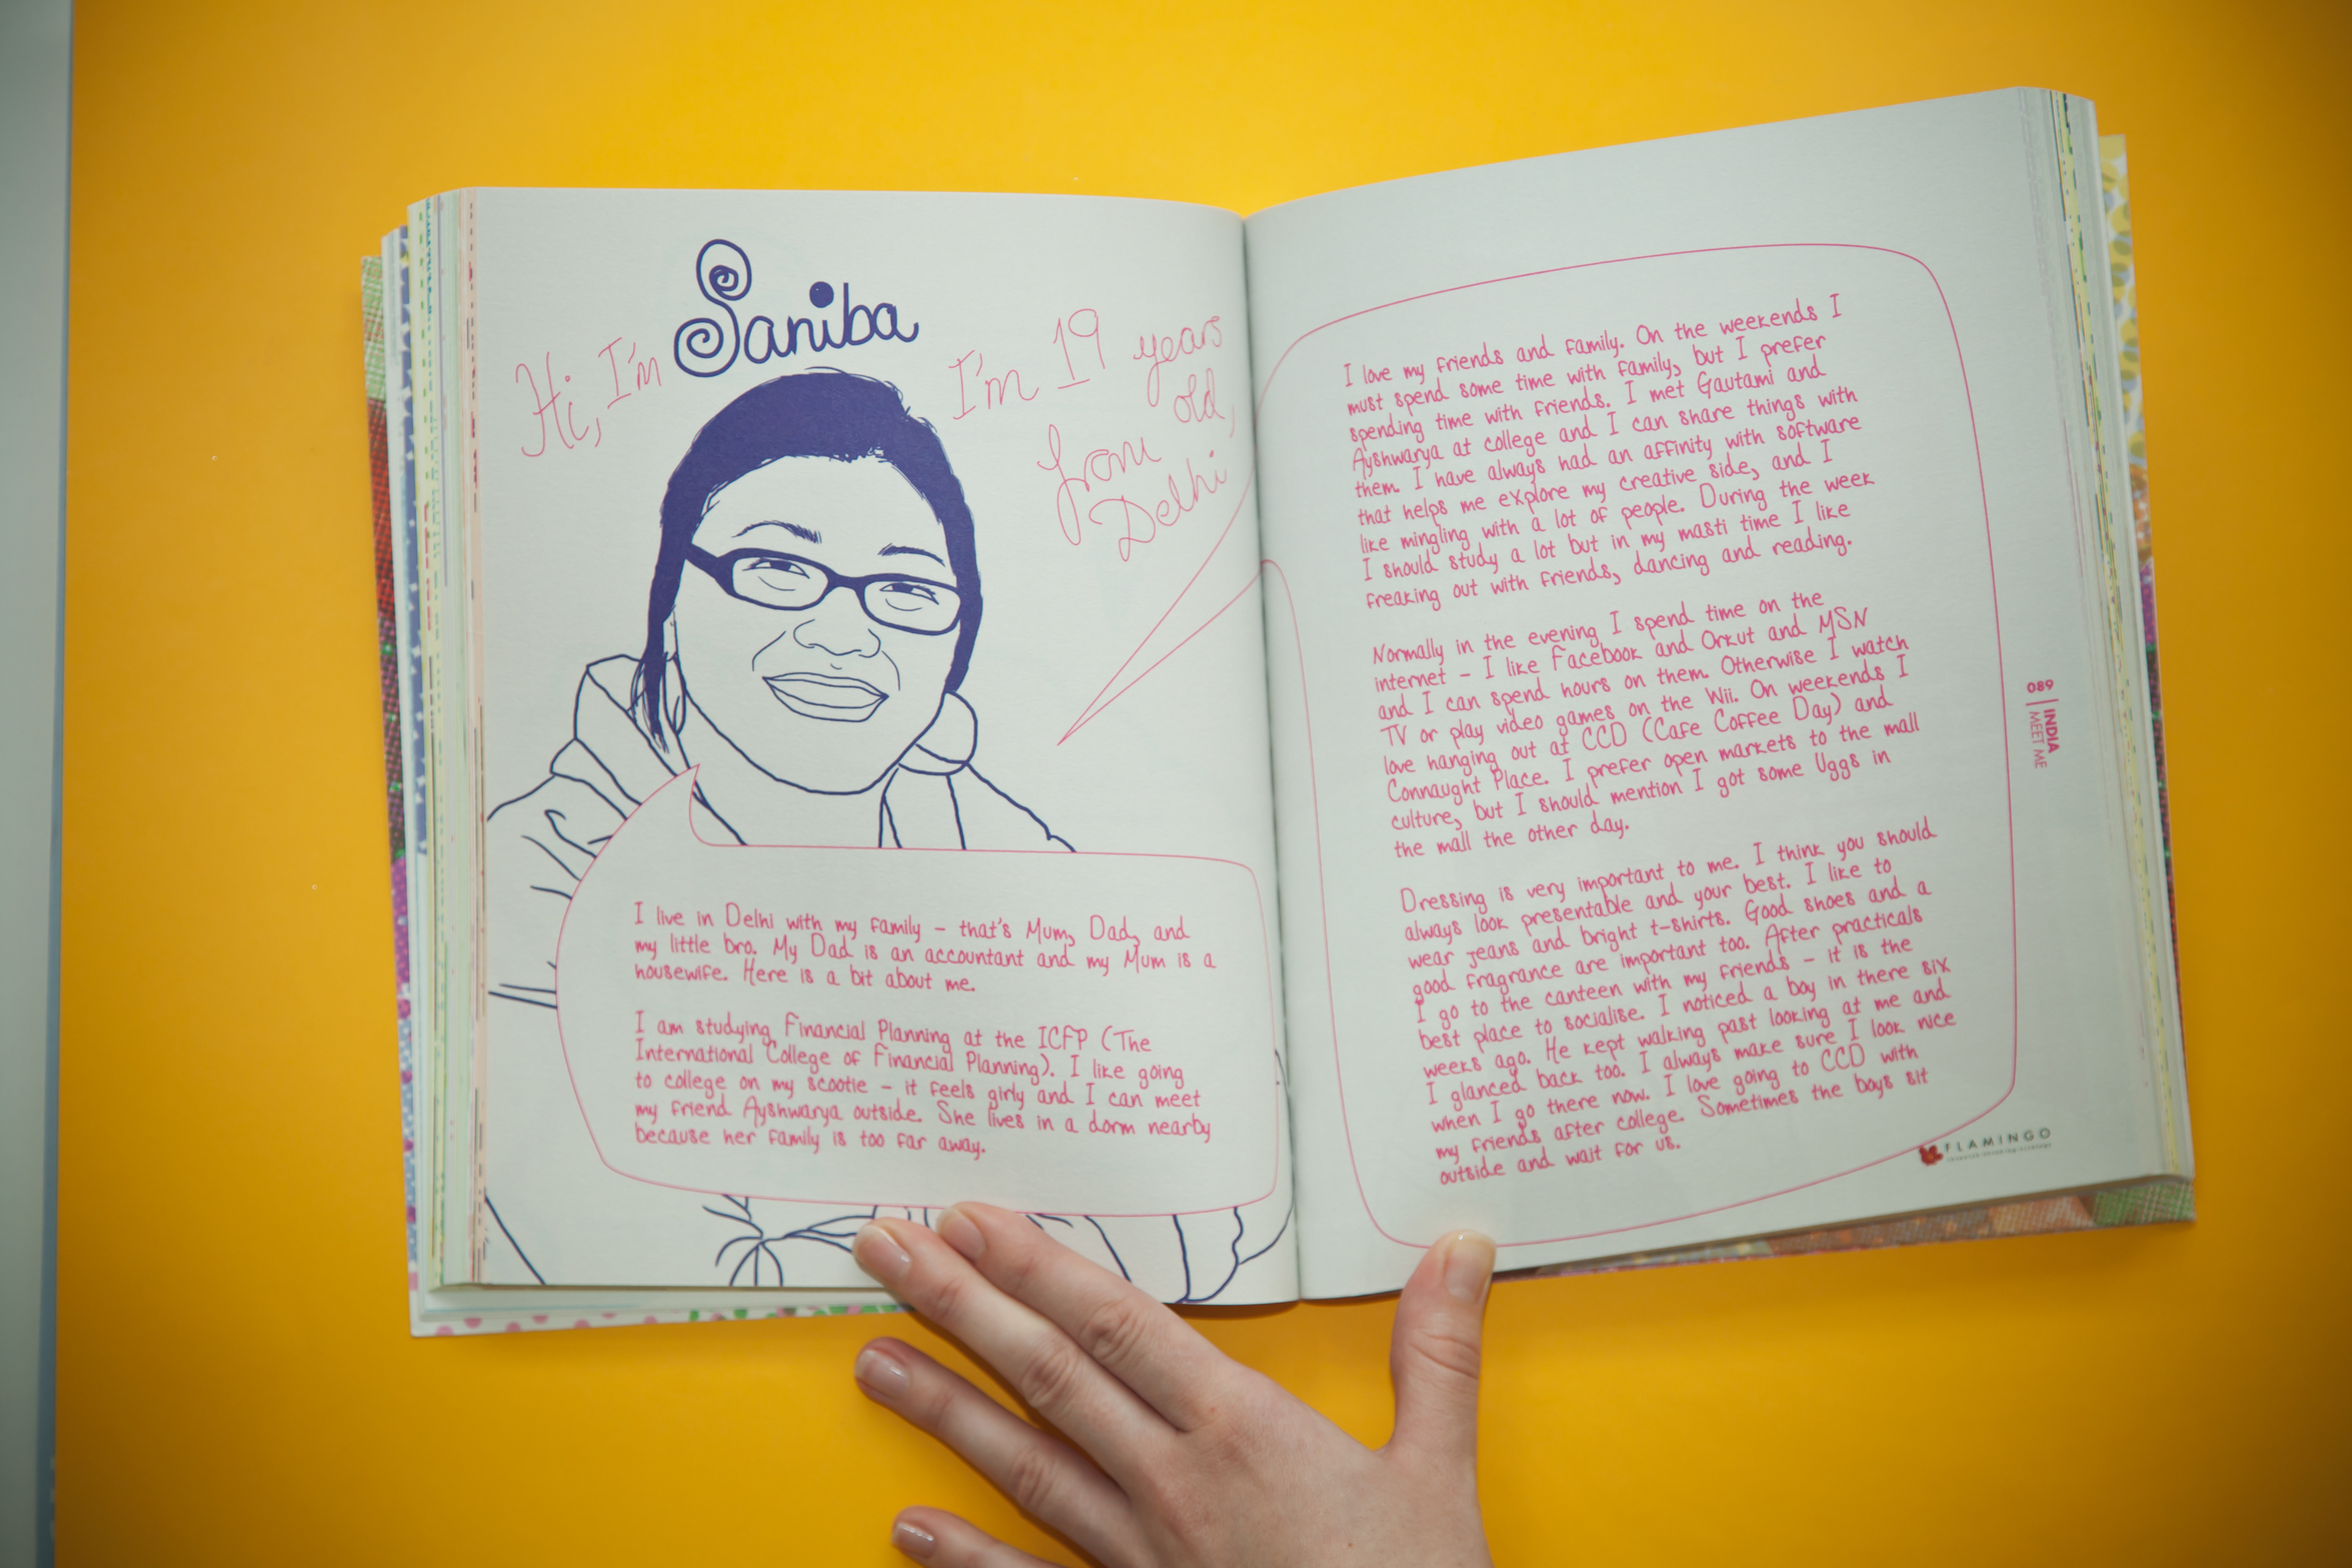 Hi, I'm
Saniba
I'm 19 years
old,
from
Delhi
I live in Delhi with my family – that's Mum, Dad, and
my little bro. My Dad is an accountant and my Mum is a
housewife. Here is a bit about me.
I am studying Financial Planning at the ICFP (The
International College of Financial Planning). I like going
to college on my scootie – it feels girly and I can meet
my friend Ayshwarya outside. She lives in a dorm nearby
because her family is too far away.
I love my friends and family. On the weekends I
must spend some time with family, but I prefer
spending time with friends. I met Gautami and
Ayshwarya at college and I can share things with
them. I have always had an affinity with software
that helps me explore my creative side, and I
like mingling with a lot of people. During the week
I should study a lot but in my masti time I like
freaking out with friends, dancing and reading.
Normally in the evening I spend time on the
internet – I like Facebook and Orkut and MSN
and I can spend hours on them. Otherwise I watch
TV or play video games on the Wii. On weekends I
love hanging out at CCD (Cafe Coffee Day) and
Connaught Place. I prefer open markets to the mall
culture, but I should mention I got some Uggs in
the mall the other day.
Dressing is very important to me. I think you should
always look presentable and your best. I like to
wear jeans and bright t-shirts. Good shoes and a
good fragrance are important too. After practicals
I go to the canteen with my friends – it is the
best place to socialise. I noticed a boy in there six
weeks ago. He kept walking past looking at me and
I glanced back too. I always make sure I look nice
when I go there now. I love going to CCD with
my friends after college. Sometimes the boys sit
outside and wait for us.
089
INDIA
MEET ME
FLAMINGO